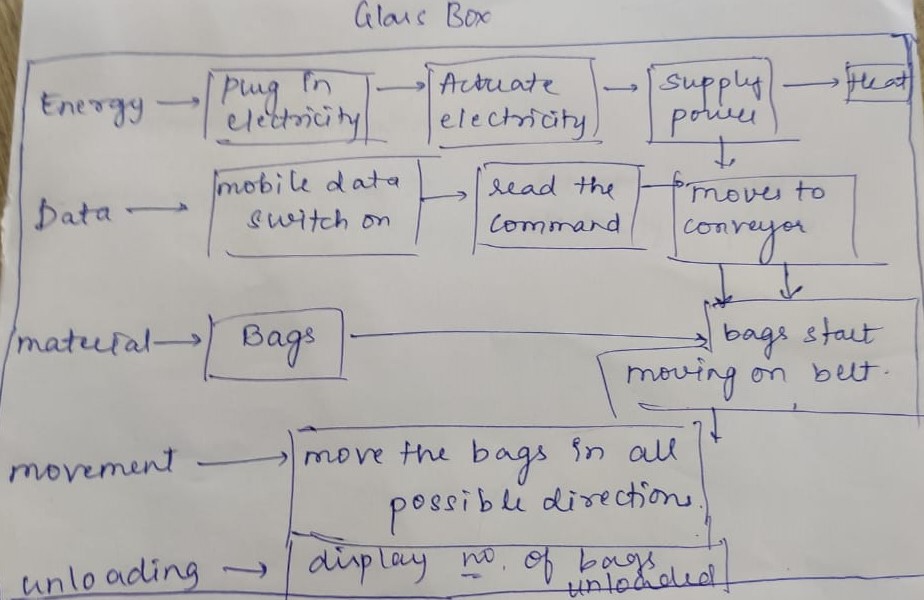 Glass Box
Energy → Plug in electricity → Actuate electricity → Supply power → Heat
Data → mobile data switch on → read the command → moves to conveyor
material → Bags → bags start moving on belt.
movement → move the bags in all possible direction.
unloading → display no. of bags unloaded